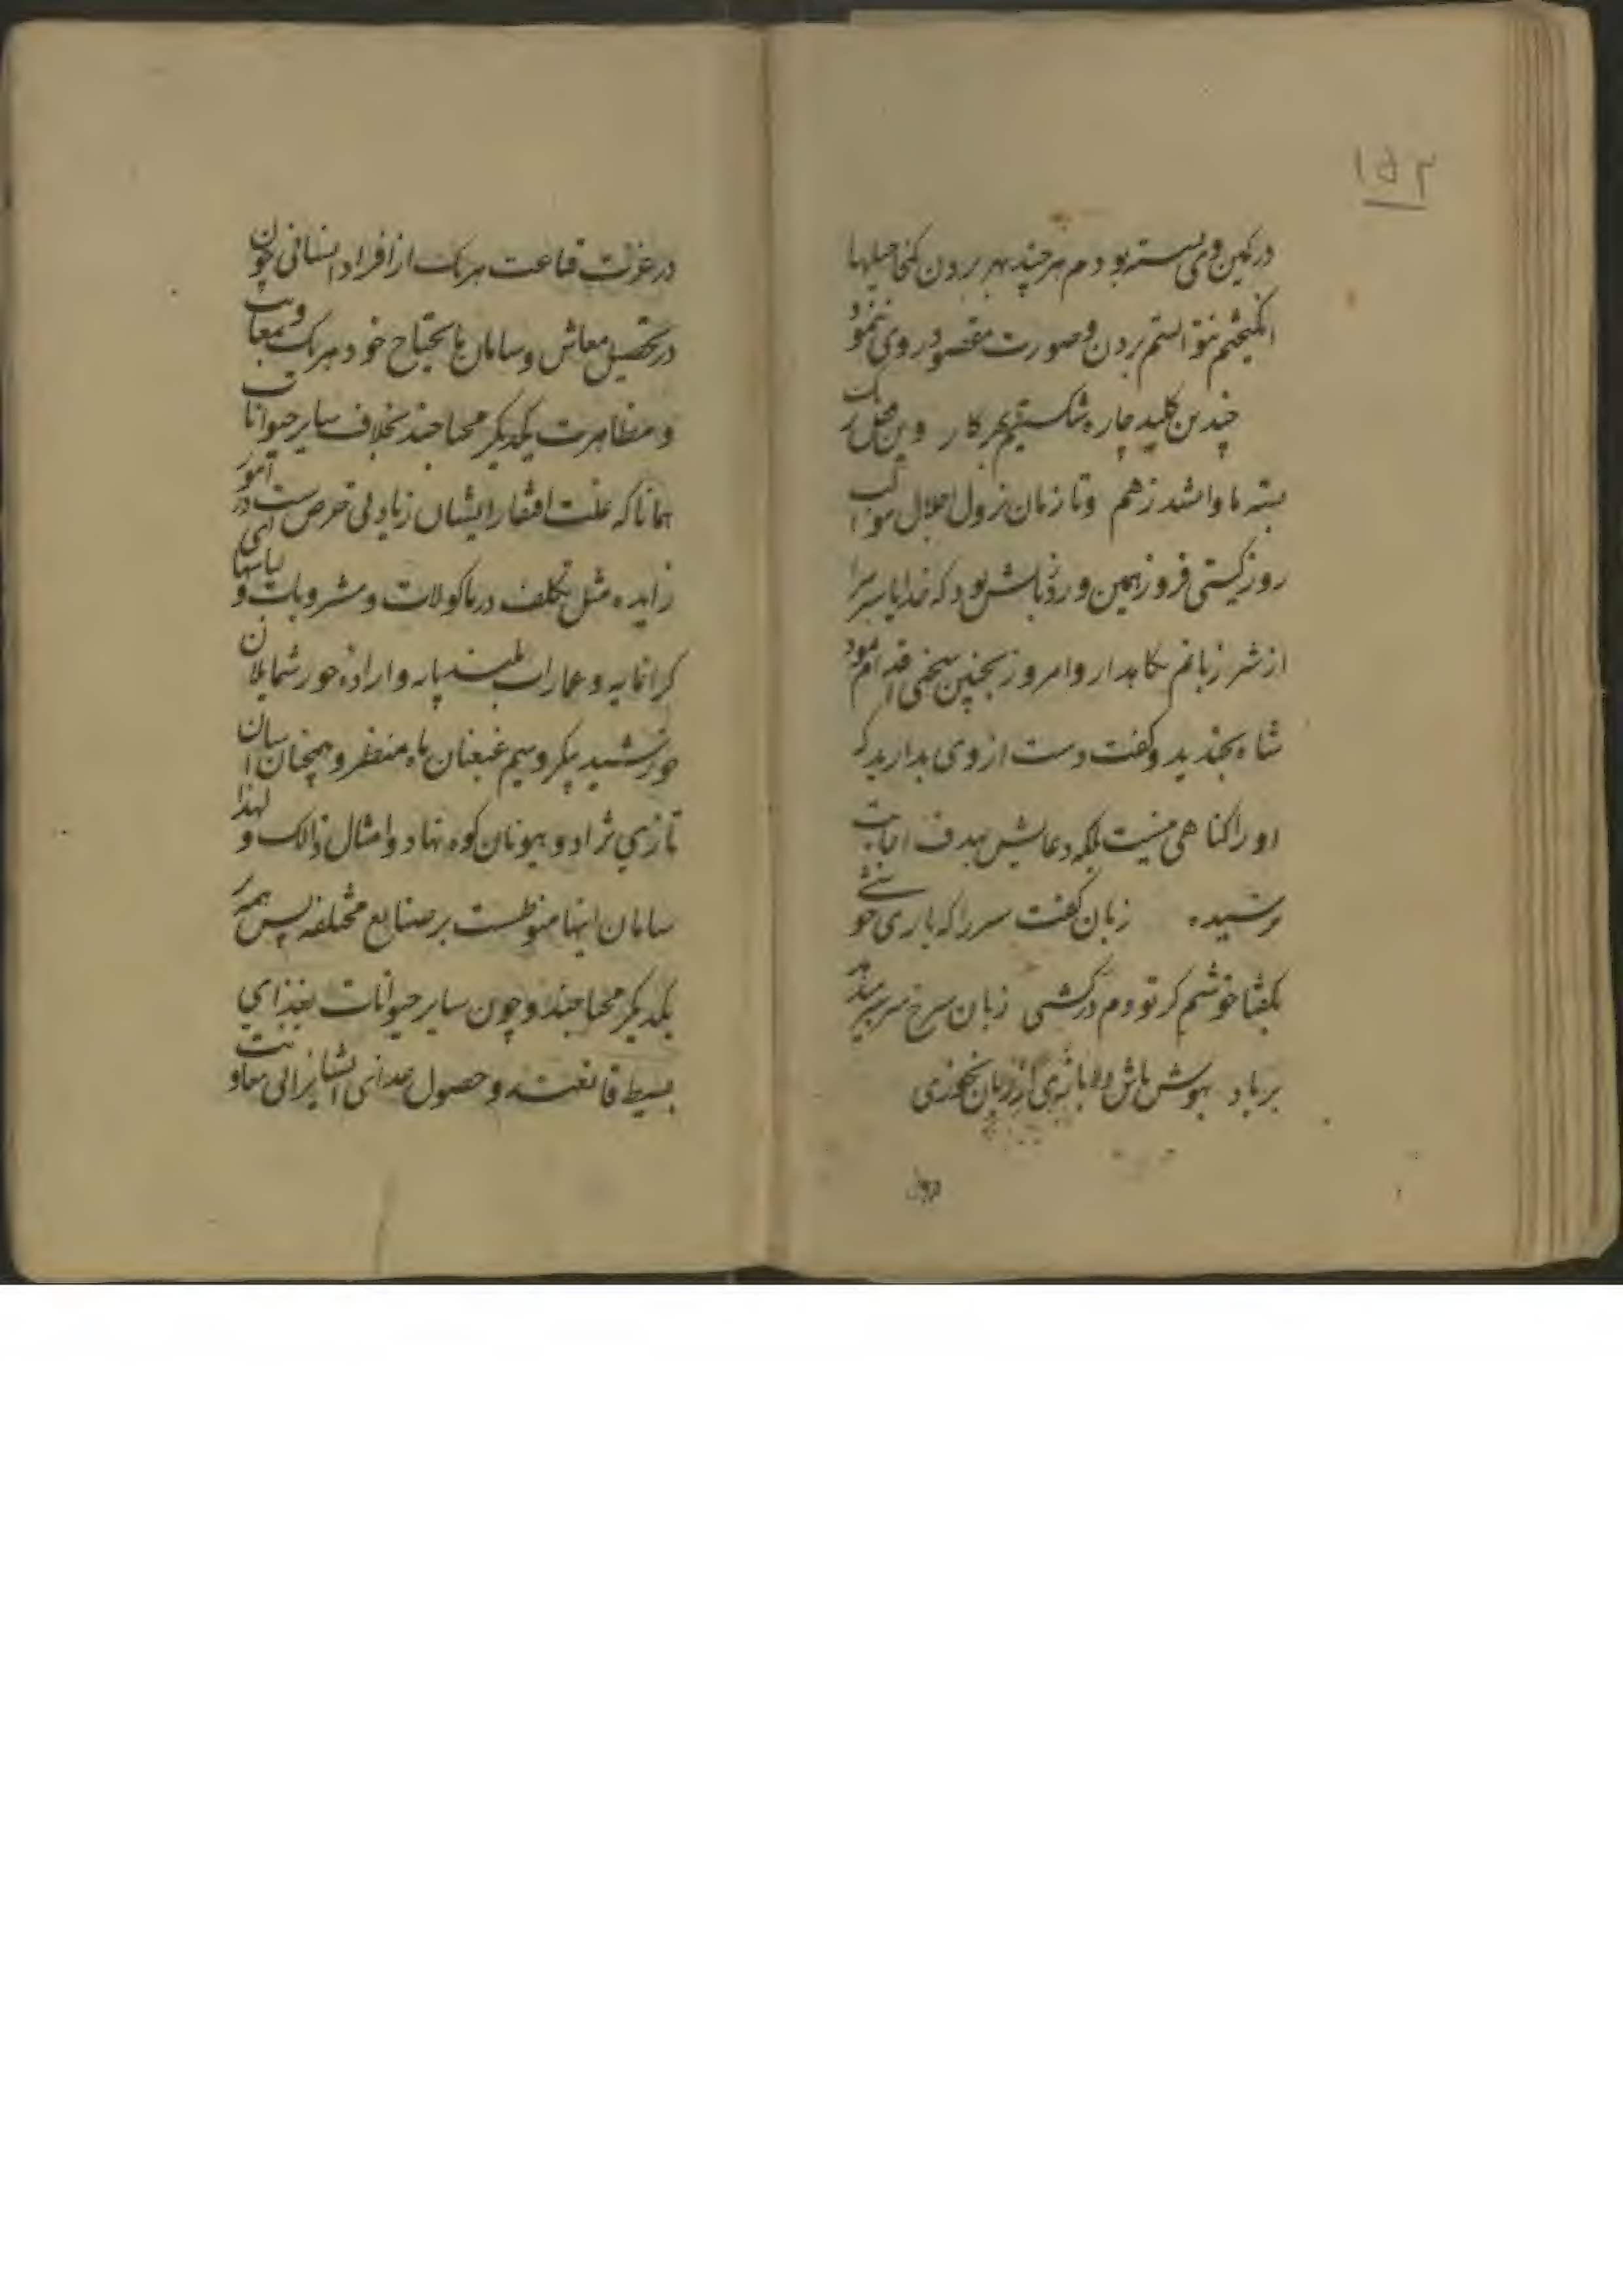 ۱۵۲
در کمین وی بسته بودم هر چند بهر بردن کنجا حیلها
انگیختم نتوانستم بردن و صورت مقصود روی ننمود
چندین کلید چاره شکستیم بهر کار وین قفل
بسته ما وا نشد ز هم و تا زمان نزول اجلال موکب
روز گیتی فروز همین ورد زبانش بود که خدایا سر مرا
از شر زبانم نگاهدار و امروز بچنین سخنی اقدام نمود
شاه بخندید و گفت دست از وی بدارید که
او را گناهی نیست بلکه دعایش بهدف اجابت
نرسیده زبان گفت سر را که باری خوشی
بگفتا خوشم گر تو دم درکشی زبان سرخ سر سبز میدهد
برباد بهوش باش
در عزلت قناعت هر یک از افراد انسانی چون
در تحصیل معاش و سامان مایحتاج خود هر یک بمعاونت
و مظاهرت یکدیگر محتاجند بخلاف سایر حیوانات
همانا که علت افتقار ایشان زیادتی حرص است در امور
زایده مثل تکلف در ماکولات و مشروبات و لباسهای
گرانمایه و عمارات بلند پایه و اراده حور شمایلان
خورشید پیکر و سیم غبغبان ماه منظر و همچنان اسبان
تازی نژاد و هیونان کوه نهاد و امثال ذالک و لهذا
سامان اینها منوطست بر صنایع مختلفه پس همه
یکدیگر محتاجند و چون سایر حیوانات بغذای
بسیط قانعند و حصول غذای ایشان برای معاونت